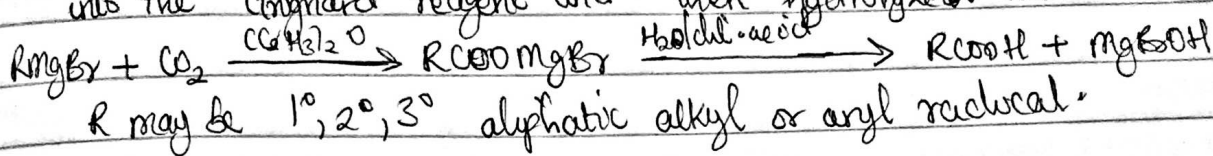 into the Grignard reagent and then hydrolyzed
RMgBr + CO2 (C2H5)2O → RCOOMgBr H2O/dil.acid → RCOOH + MgBrOH
R may be 1°, 2°, 3° aliphatic alkyl or aryl radical.